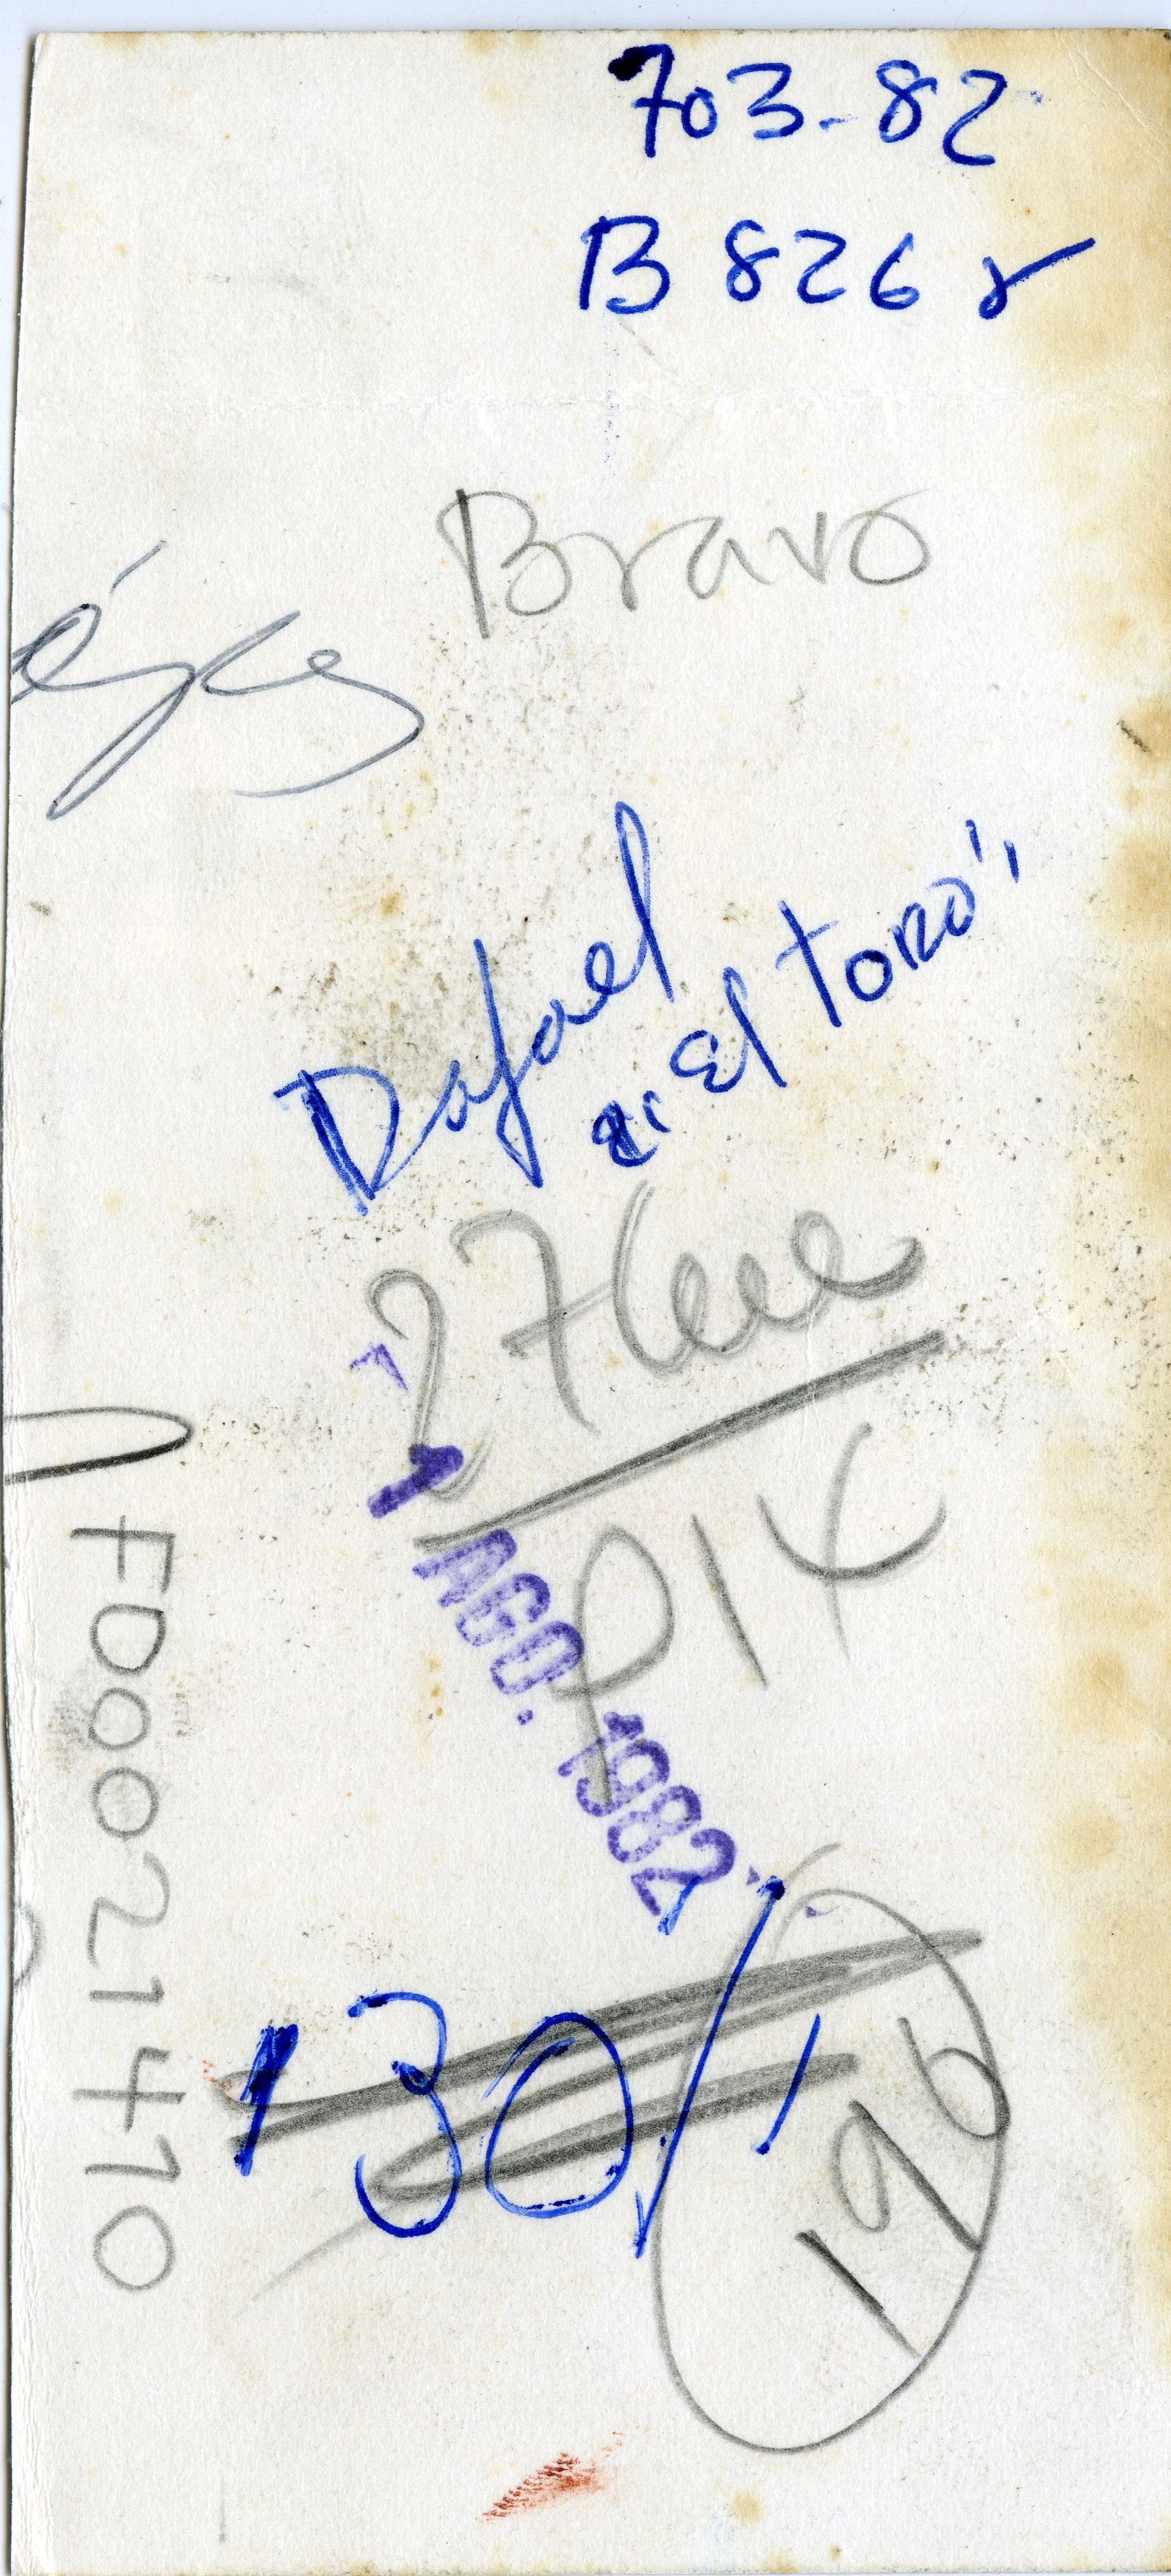 703-82
B 826 r
Bravo
Rafael
"El toro"
27
P14
AGO. 1982
130/1
196
FD0021410